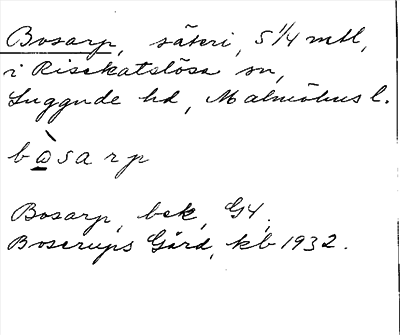 Bosarp, säteri, 5 1/4 mtl,
i Risekatslösa sn,
Luggude hd, Malmöhus l.
bò̱sarp
Bosarp, bek, G4,
Boserups Gård, kb 1932.